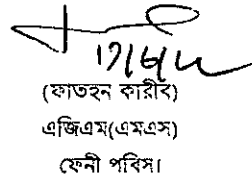 (ফাতহন কারীব)
এজিএম(এমএস)
ফেনী পবিস।